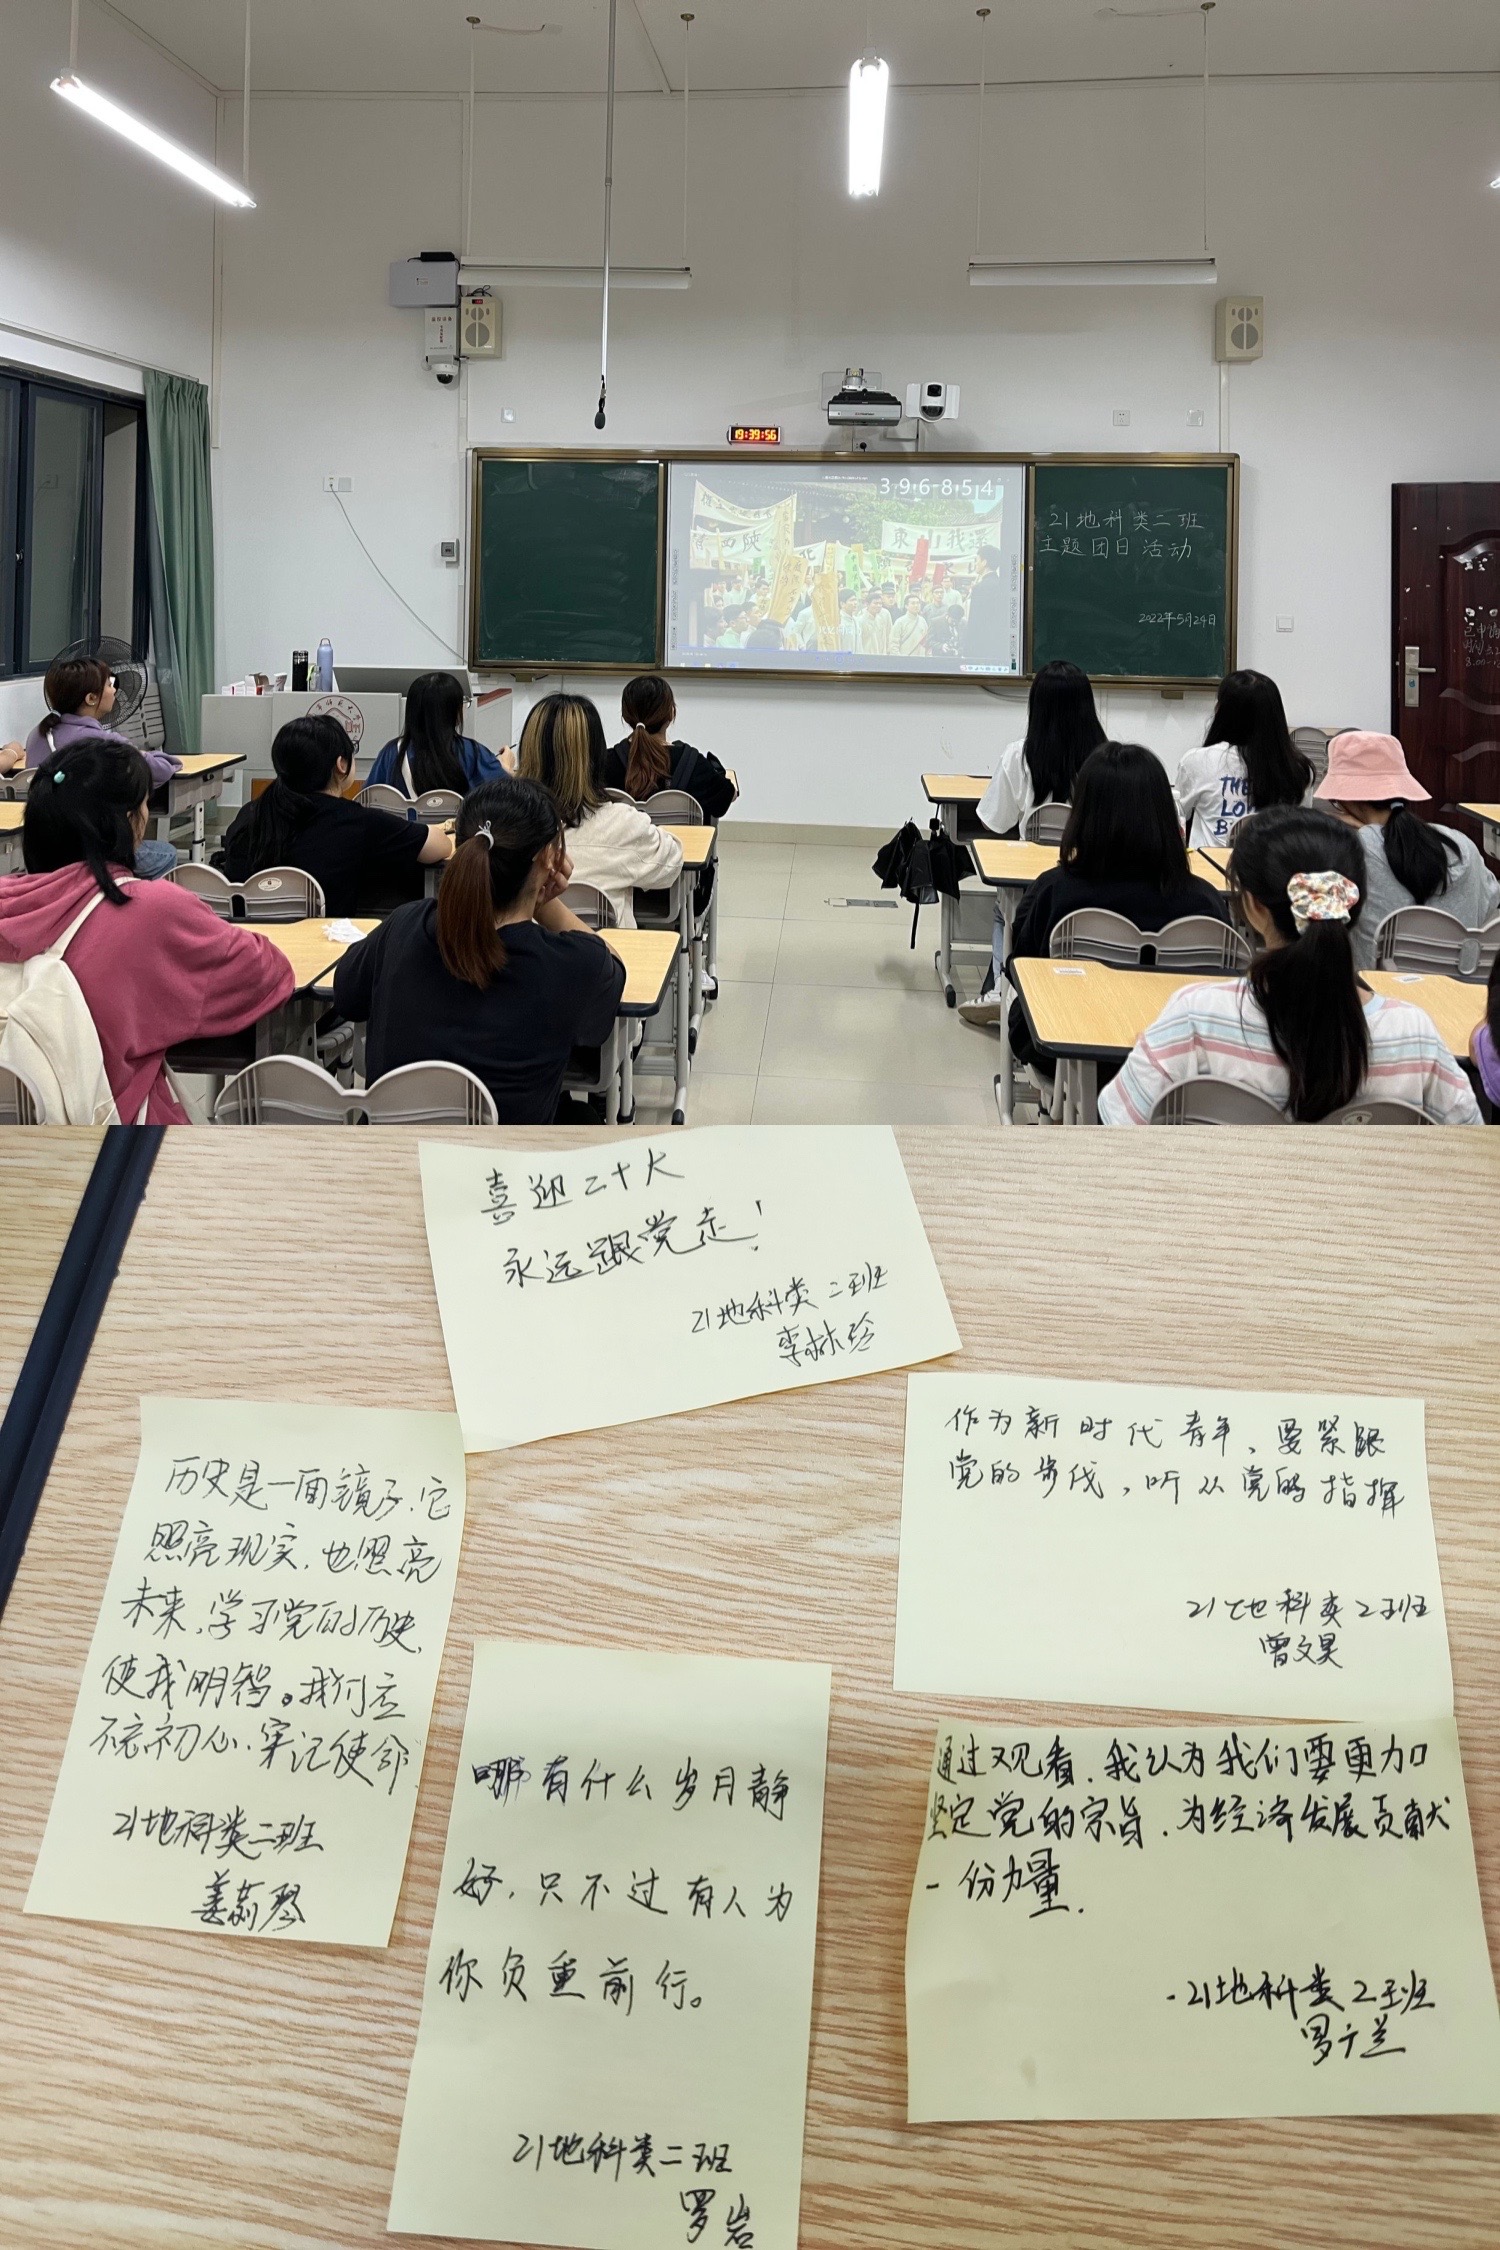 19:39:56
396854
21地科类二班
主题团日活动
2022年5月24日
THE
LO
B
喜迎二十大
永远跟党走!
21地科类二班
李林玲
作为新时代青年,要紧跟
党的步伐,听从党的指挥
21地科类2班
曾文昊
历史是一面镜子,它
照亮现实,也照亮
未来,学习党的历史,
使我明智。我们应
不忘初心,牢记使命
21地科类二班
姜蔚琴
哪有什么岁月静
好,只不过有人为
你负重前行。
21地科类二班
罗岩
通过观看,我认为我们要更加
坚定党的宗旨,为经济发展贡献
一份力量.
21地科类2班
罗兰